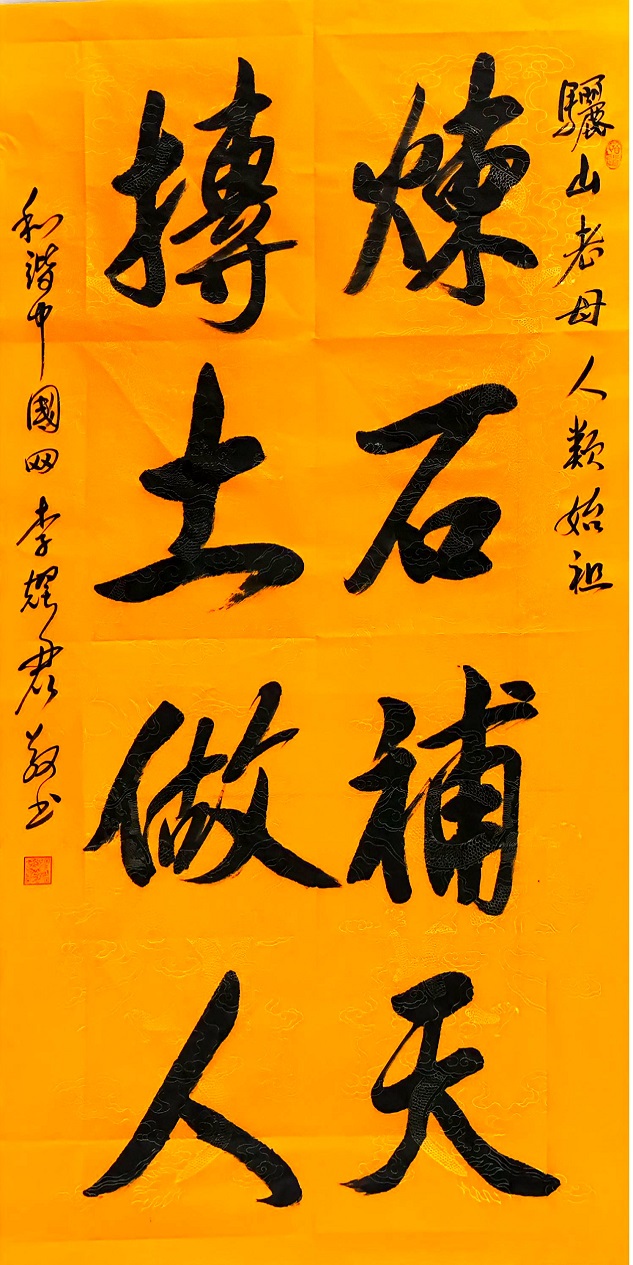 驪山老母人類始祖
煉石補天
摶土做人
和諧中國网李耀君敬书